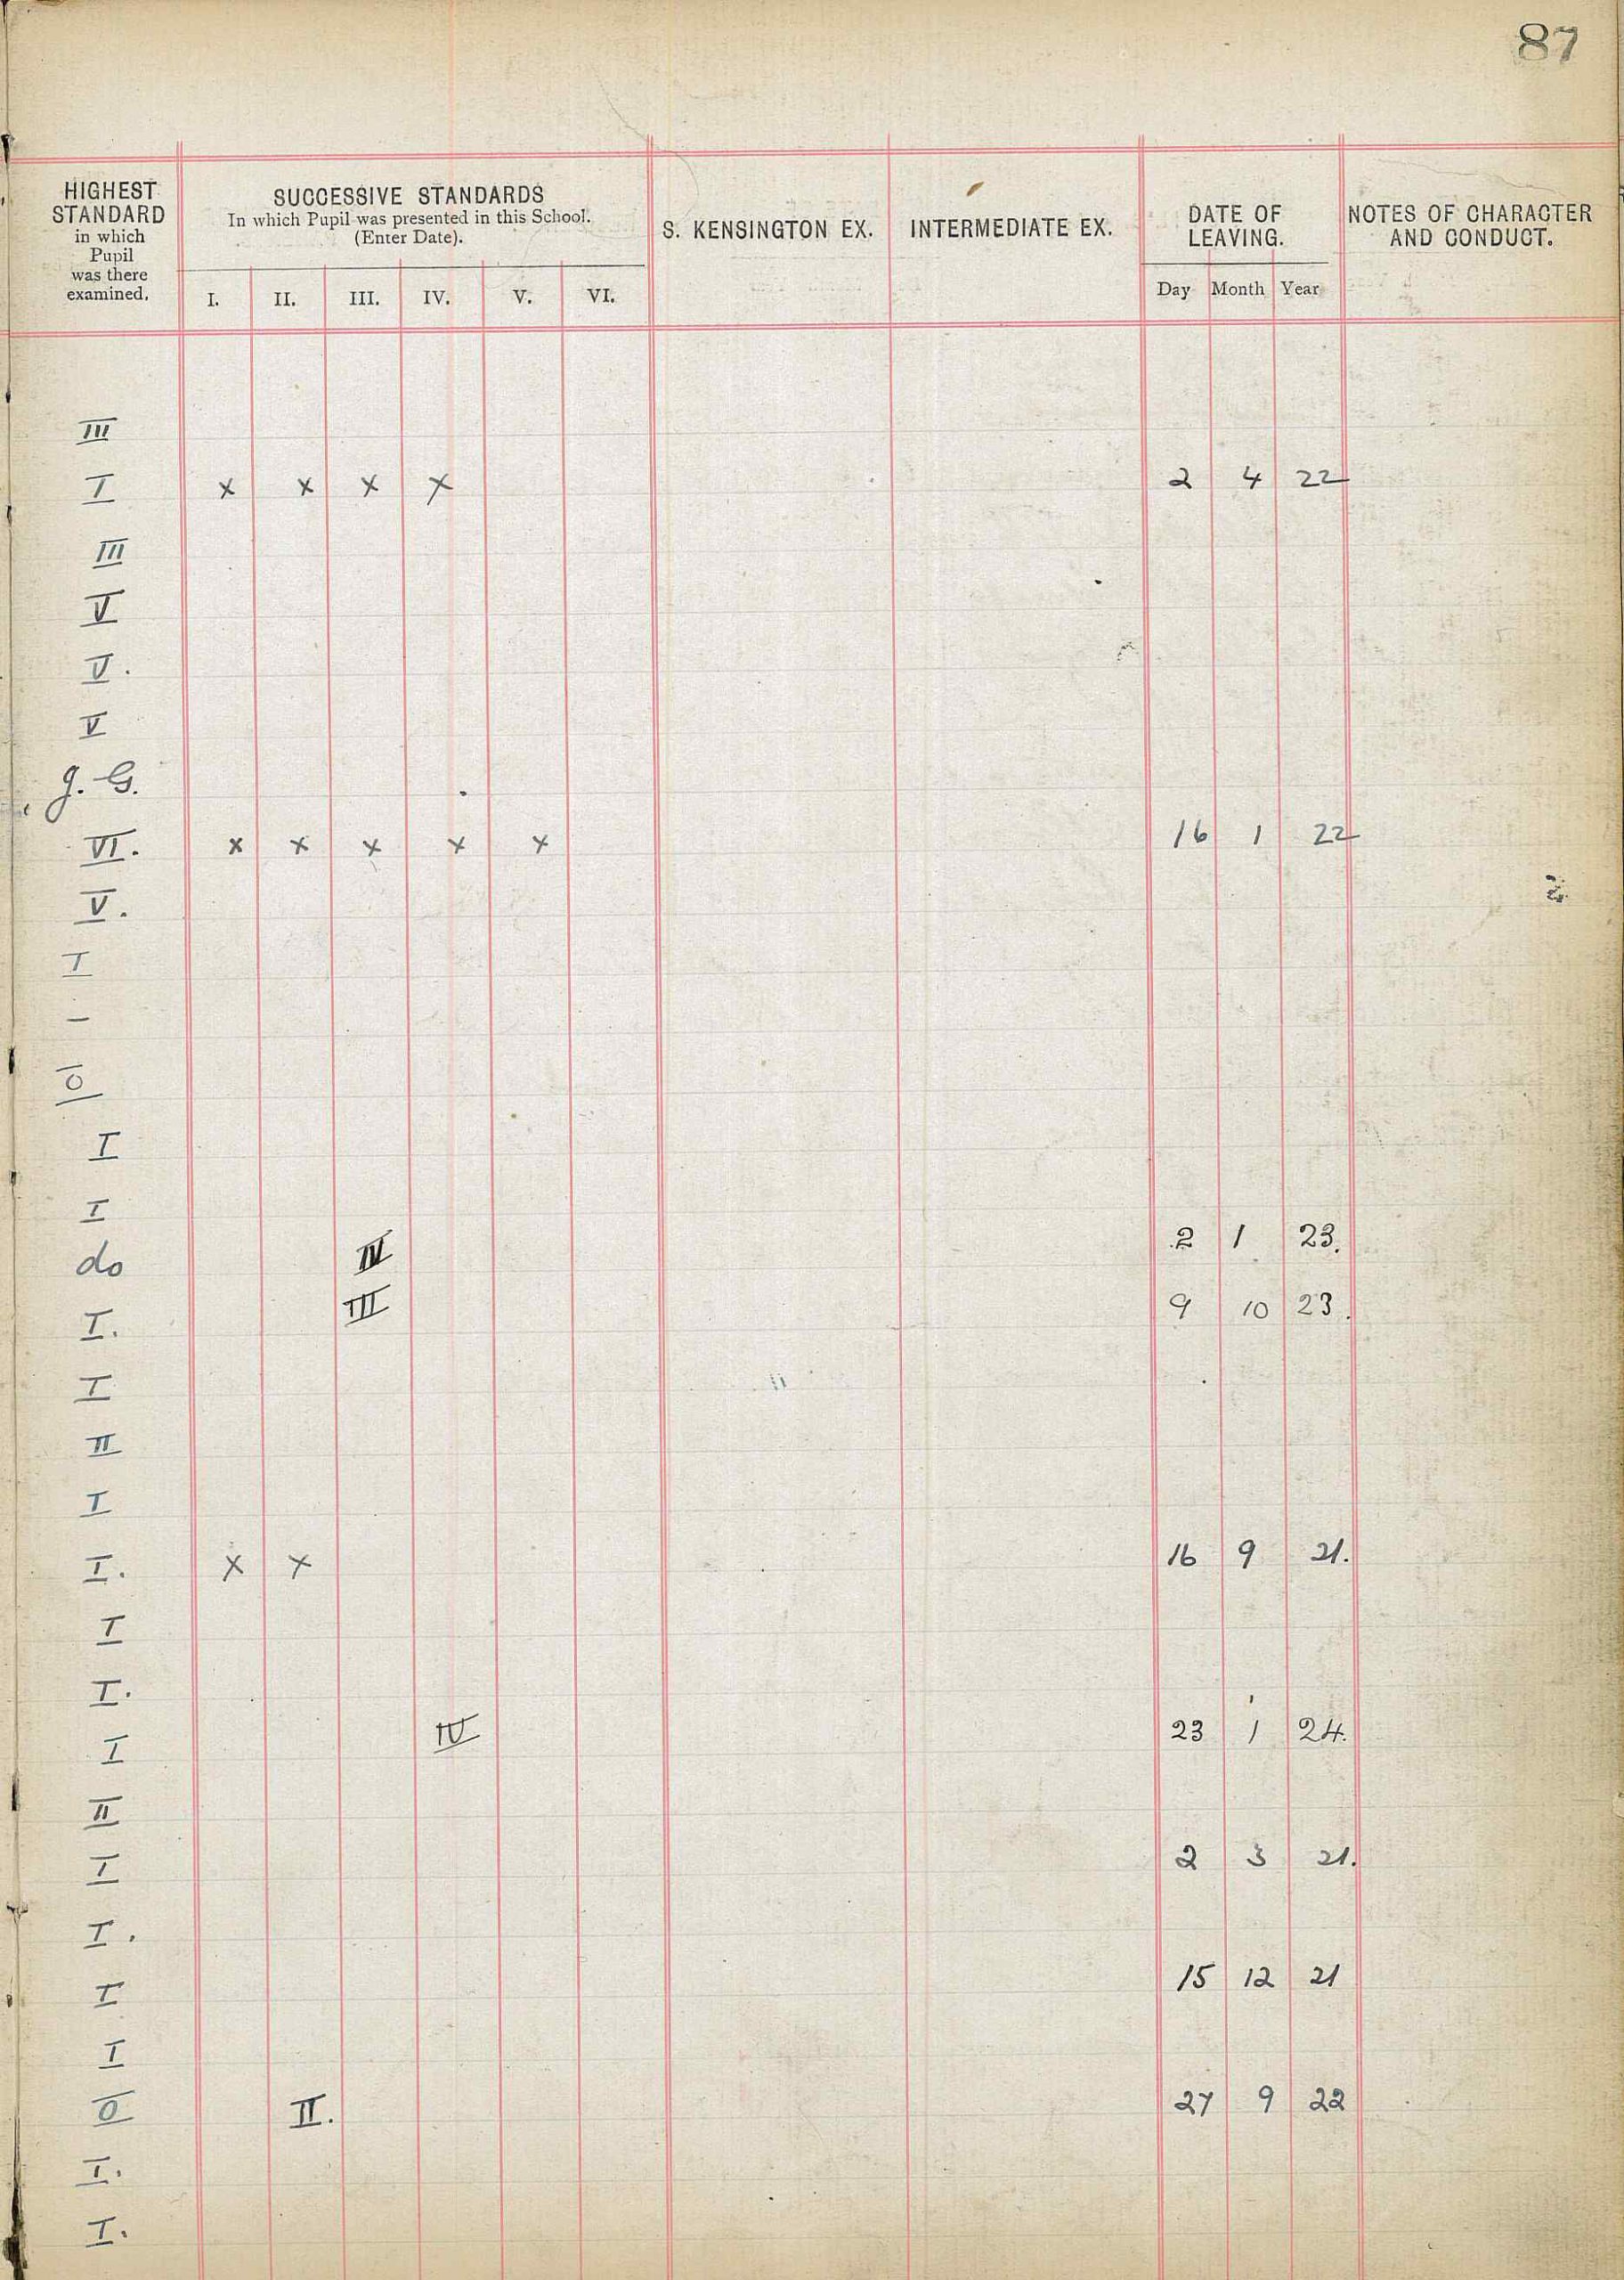 87
HIGHEST STANDARD in which Pupil was there examined.
SUCCESSIVE STANDARDS
In which Pupil was presented in this School.
(Enter Date).
I. II. III. IV. V. VI.
S. KENSINGTON EX.
INTERMEDIATE EX.
DATE OF LEAVING.
Day Month Year
NOTES OF CHARACTER AND CONDUCT.
III
I x x x x 2 4 22
III
V
V.
V
J. G.
VI. x x x x x 16 1 22
V.
I
–
0
I
I
do IV 2 1 23.
I. III 9 10 23.
I
II
I
I. x x 16 9 21.
I
I.
I IV 23 1 24.
II
I 2 3 21.
I.
I 15 12 21
I
0 II. 27 9 22
I.
I.